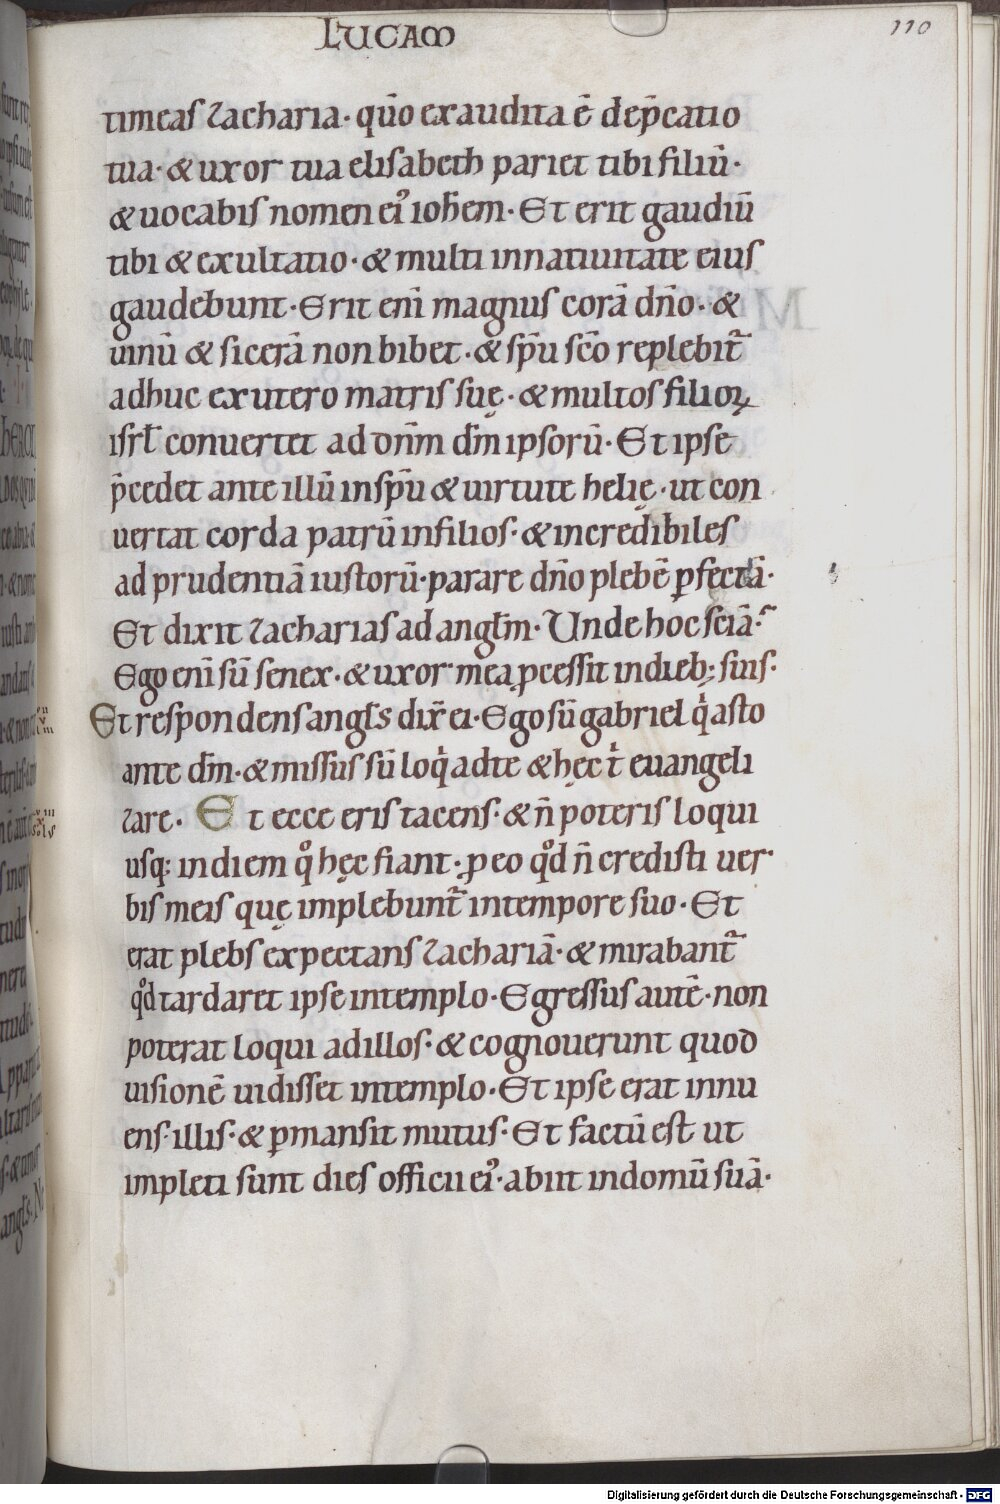 LUCAM
110
timeas zacharia. qūo exaudita ē dep̄catio
tua. & uxor tua elisabeth pariet tibi filiū.
& uocabis nomen ei᾽ ioh̄em. Et erit gaudiū
tibi & exultatio. & multi innatiuitate eius
gaudebunt. Erit eni̅ magnus corā dn̄o. &
uinū & sicerā non bibet. & sp̄u sc̄o replebit᷑
adhuc ex utero matris suę. & multos filioꝝ
isrł conuertet ad dn̄m dm̄ ipsorū. Et ipse
p̄cedet ante illū insp̄u & uirtute helię. ut con
uertat corda patrū infilios. & incredibiles
ad prudentiā iustorū. parare dn̄o plebē ꝑfectā.
Et dixit zacharias ad angłm. Unde hoc sciā?
Ego eni̅ sū senex. & uxor mea ꝓcessit indieb; suis.
Et respondens angłs dix̄ ei. Ego sū gabriel qͥ asto
ante dm̄. & missus sū loqͥ adte & hęc tͥ euangeli
zare. Et ecce eris tacens. & n̄ poteris loqui
usq; indiem qͦ hęc fiant. ꝓ eo qͦd n̄ credisti uer
bis meis quę implebunt᷑ intempore suo. Et
erat plebs expectans zachariā. & mirabant᷑
qͦd tardaret ipse intemplo. Egressus autē. non
poterat loqui adillos. & cognouerunt quod
uisionē uidisset intemplo. Et ipse erat innu
ens. illis. & ꝑmansit mutus. Et factū est ut
impleti sunt dies officii ei᾽. abiit indomū suā.
Digitalisierung gefördert durch die Deutsche Forschungsgemeinschaft - DFG